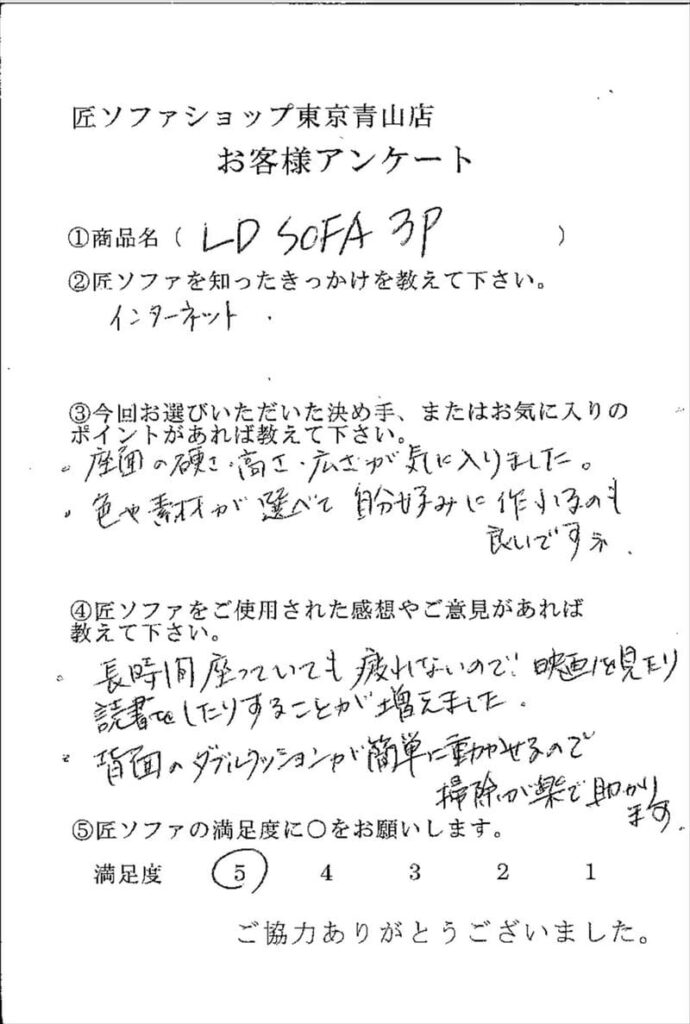 匠ソファショップ東京青山店
お客様アンケート
①商品名（ LD SOFA 3P ）
②匠ソファを知ったきっかけを教えて下さい。
インターネット．
③今回お選びいただいた決め手、またはお気に入りの
ポイントがあれば教えて下さい。
。座面の硬さ・高さ・広さが気に入りました。
・色や素材が選べて自分好みに作れるのも
良いですネ．
④匠ソファをご使用された感想やご意見があれば
教えて下さい。
。長時間座っていても疲れないので、映画を見たり
読書をしたりすることが増えました．
・背面のダブルクッションが簡単に動かせるので
掃除が楽で助かり
ます。
⑤匠ソファの満足度に〇をお願いします。
満足度 5 4 3 2 1
ご協力ありがとうございました。